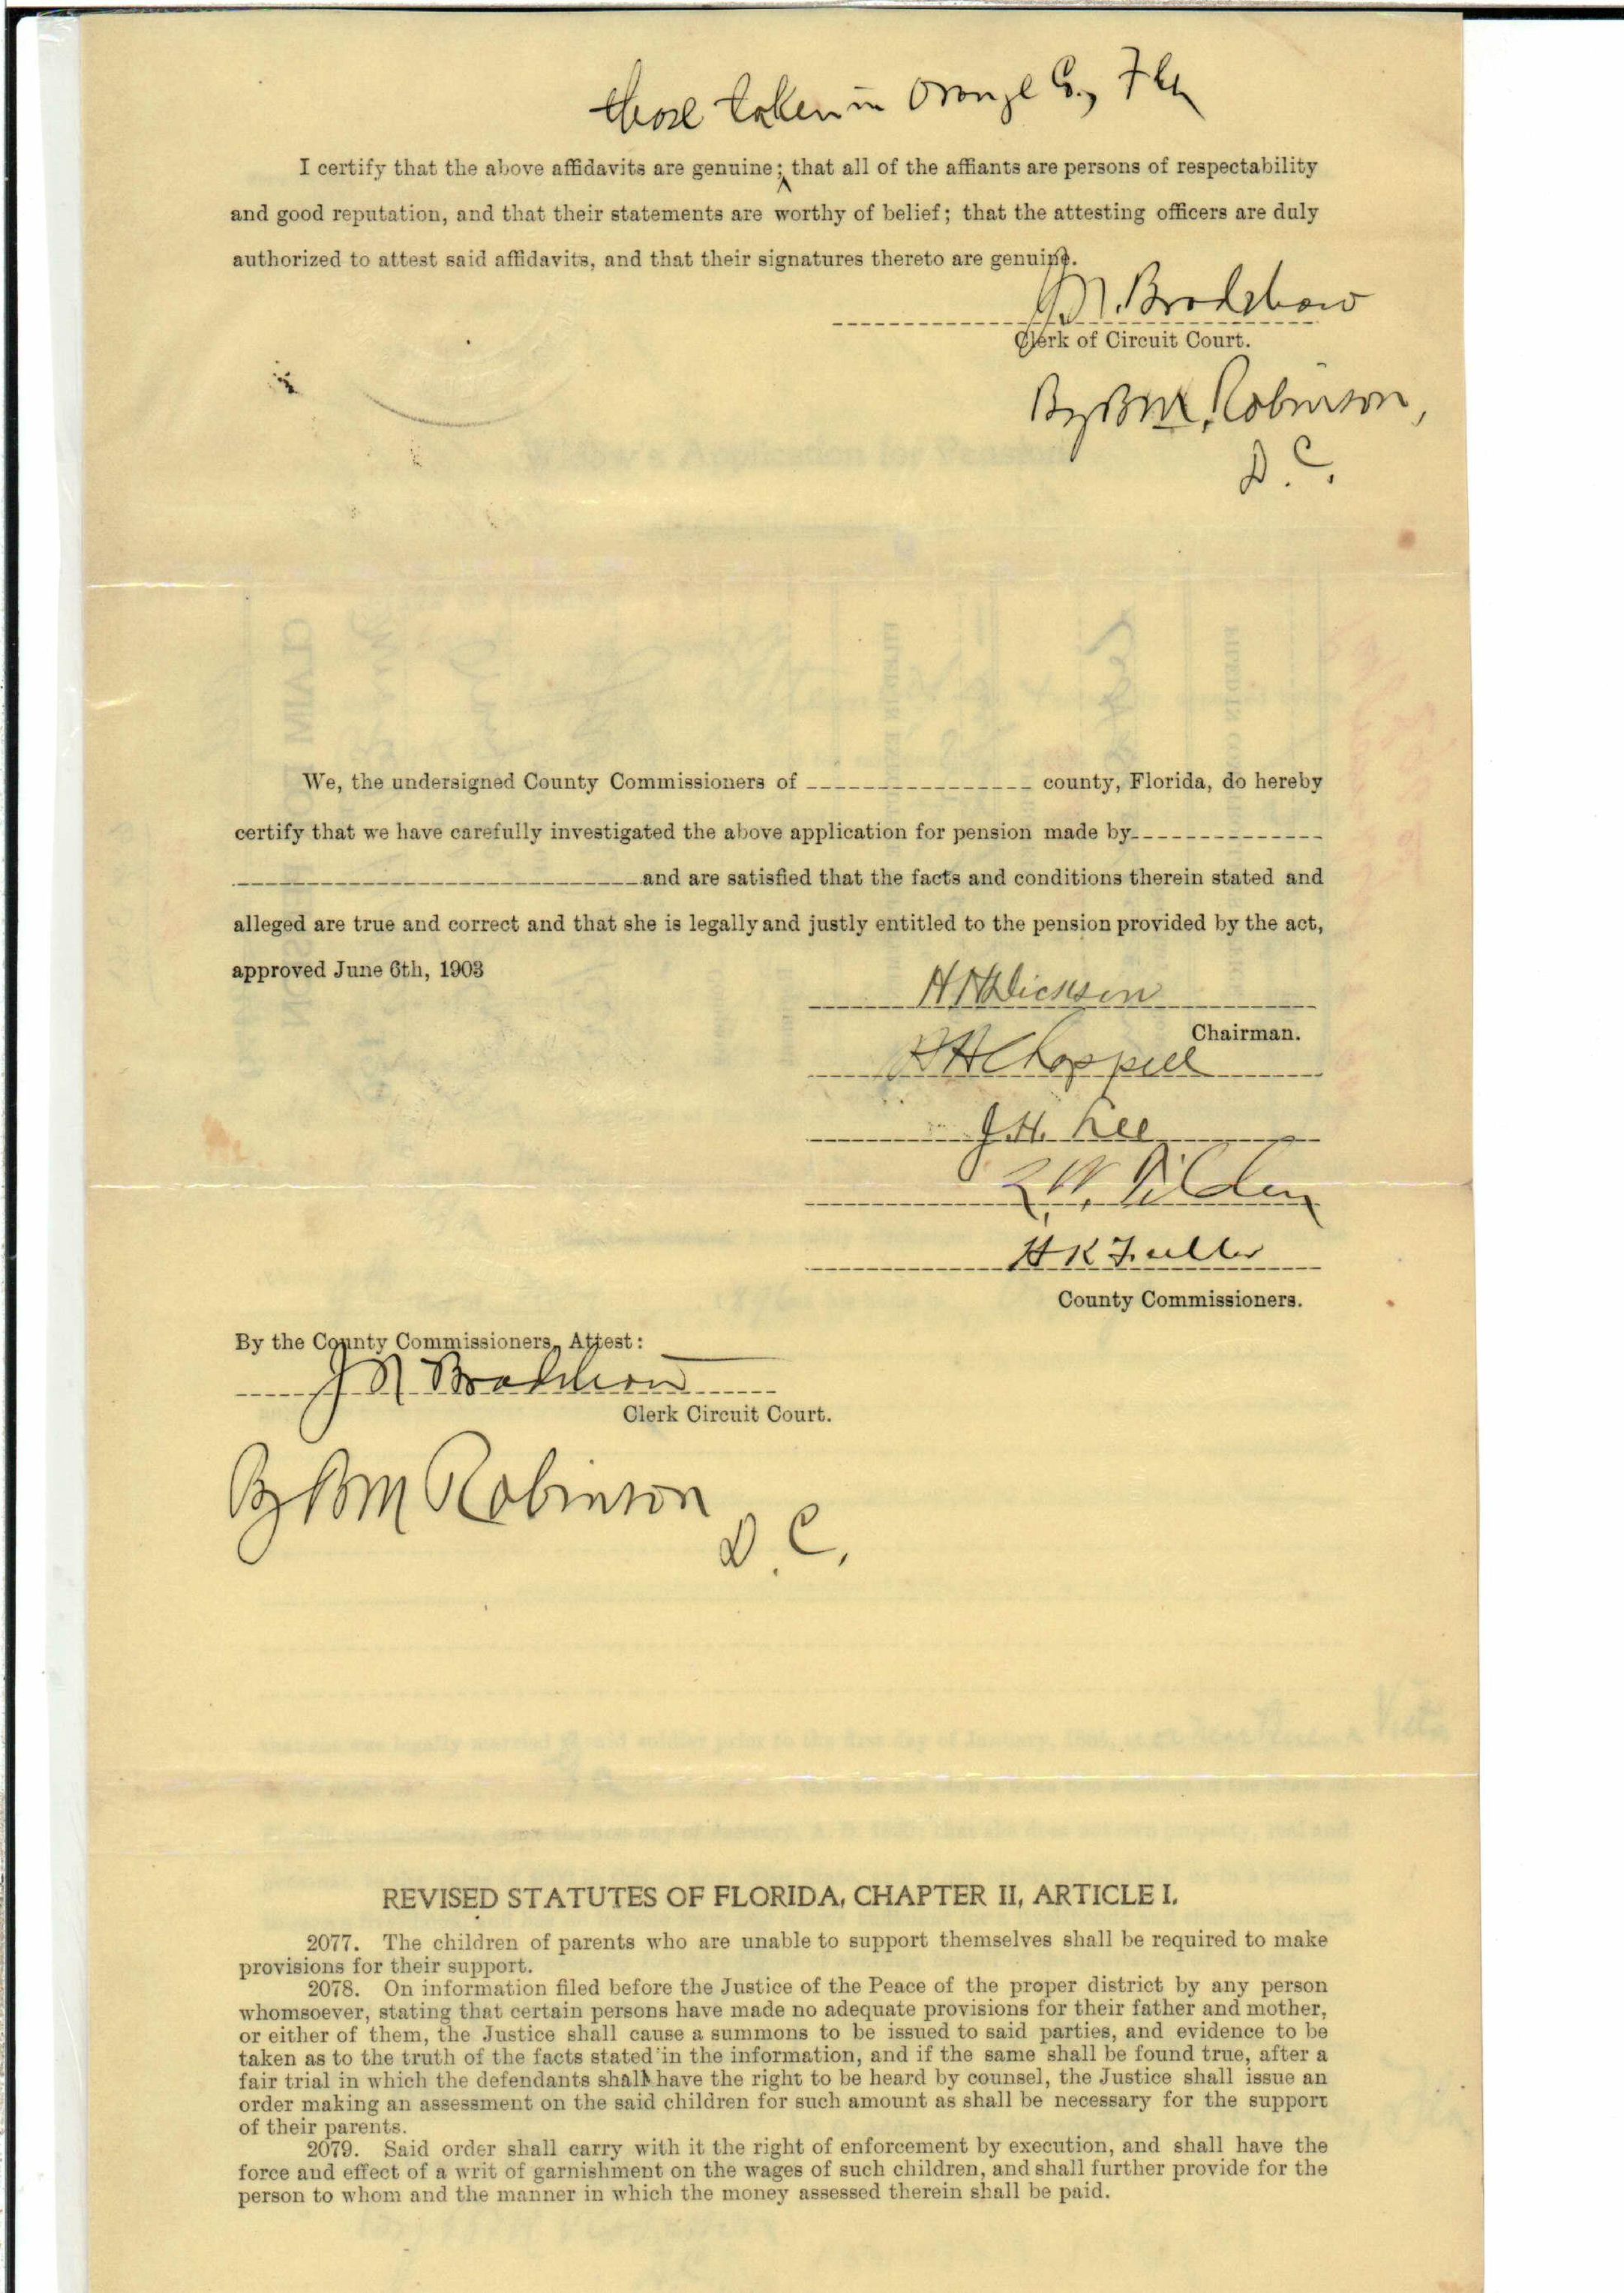 those taken in Orange Co., Fla
I certify that the above affidavits are genuine; that all of the affiants are persons of respectability
and good reputation, and that their statements are worthy of belief; that the attesting officers are duly
authorized to attest said affidavits, and that their signatures thereto are genuine.
J.N. Bradshaw
Clerk of Circuit Court.
By B M. Robinson,
D. C.
Widow's Application for Pension
We, the undersigned County Commissioners of ________________ county, Florida, do hereby
certify that we have carefully investigated the above application for pension made by______________
______________________________and are satisfied that the facts and conditions therein stated and
alleged are true and correct and that she is legally and justly entitled to the pension provided by the act,
approved June 6th, 1903
H H Dickson
Chairman.
H Chappell
J.H. Lee
L.W. Tilden
H K Fuller
County Commissioners.
By the County Commissioners, Attest:
J N Bradshaw
Clerk Circuit Court.
By B M Robinson
D. C.
REVISED STATUTES OF FLORIDA, CHAPTER II, ARTICLE I.
2077. The children of parents who are unable to support themselves shall be required to make
provisions for their support.
2078. On information filed before the Justice of the Peace of the proper district by any person
whomsoever, stating that certain persons have made no adequate provisions for their father and mother,
or either of them, the Justice shall cause a summons to be issued to said parties, and evidence to be
taken as to the truth of the facts stated in the information, and if the same shall be found true, after a
fair trial in which the defendants shall have the right to be heard by counsel, the Justice shall issue an
order making an assessment on the said children for such amount as shall be necessary for the support
of their parents.
2079. Said order shall carry with it the right of enforcement by execution, and shall have the
force and effect of a writ of garnishment on the wages of such children, and shall further provide for the
person to whom and the manner in which the money assessed therein shall be paid.